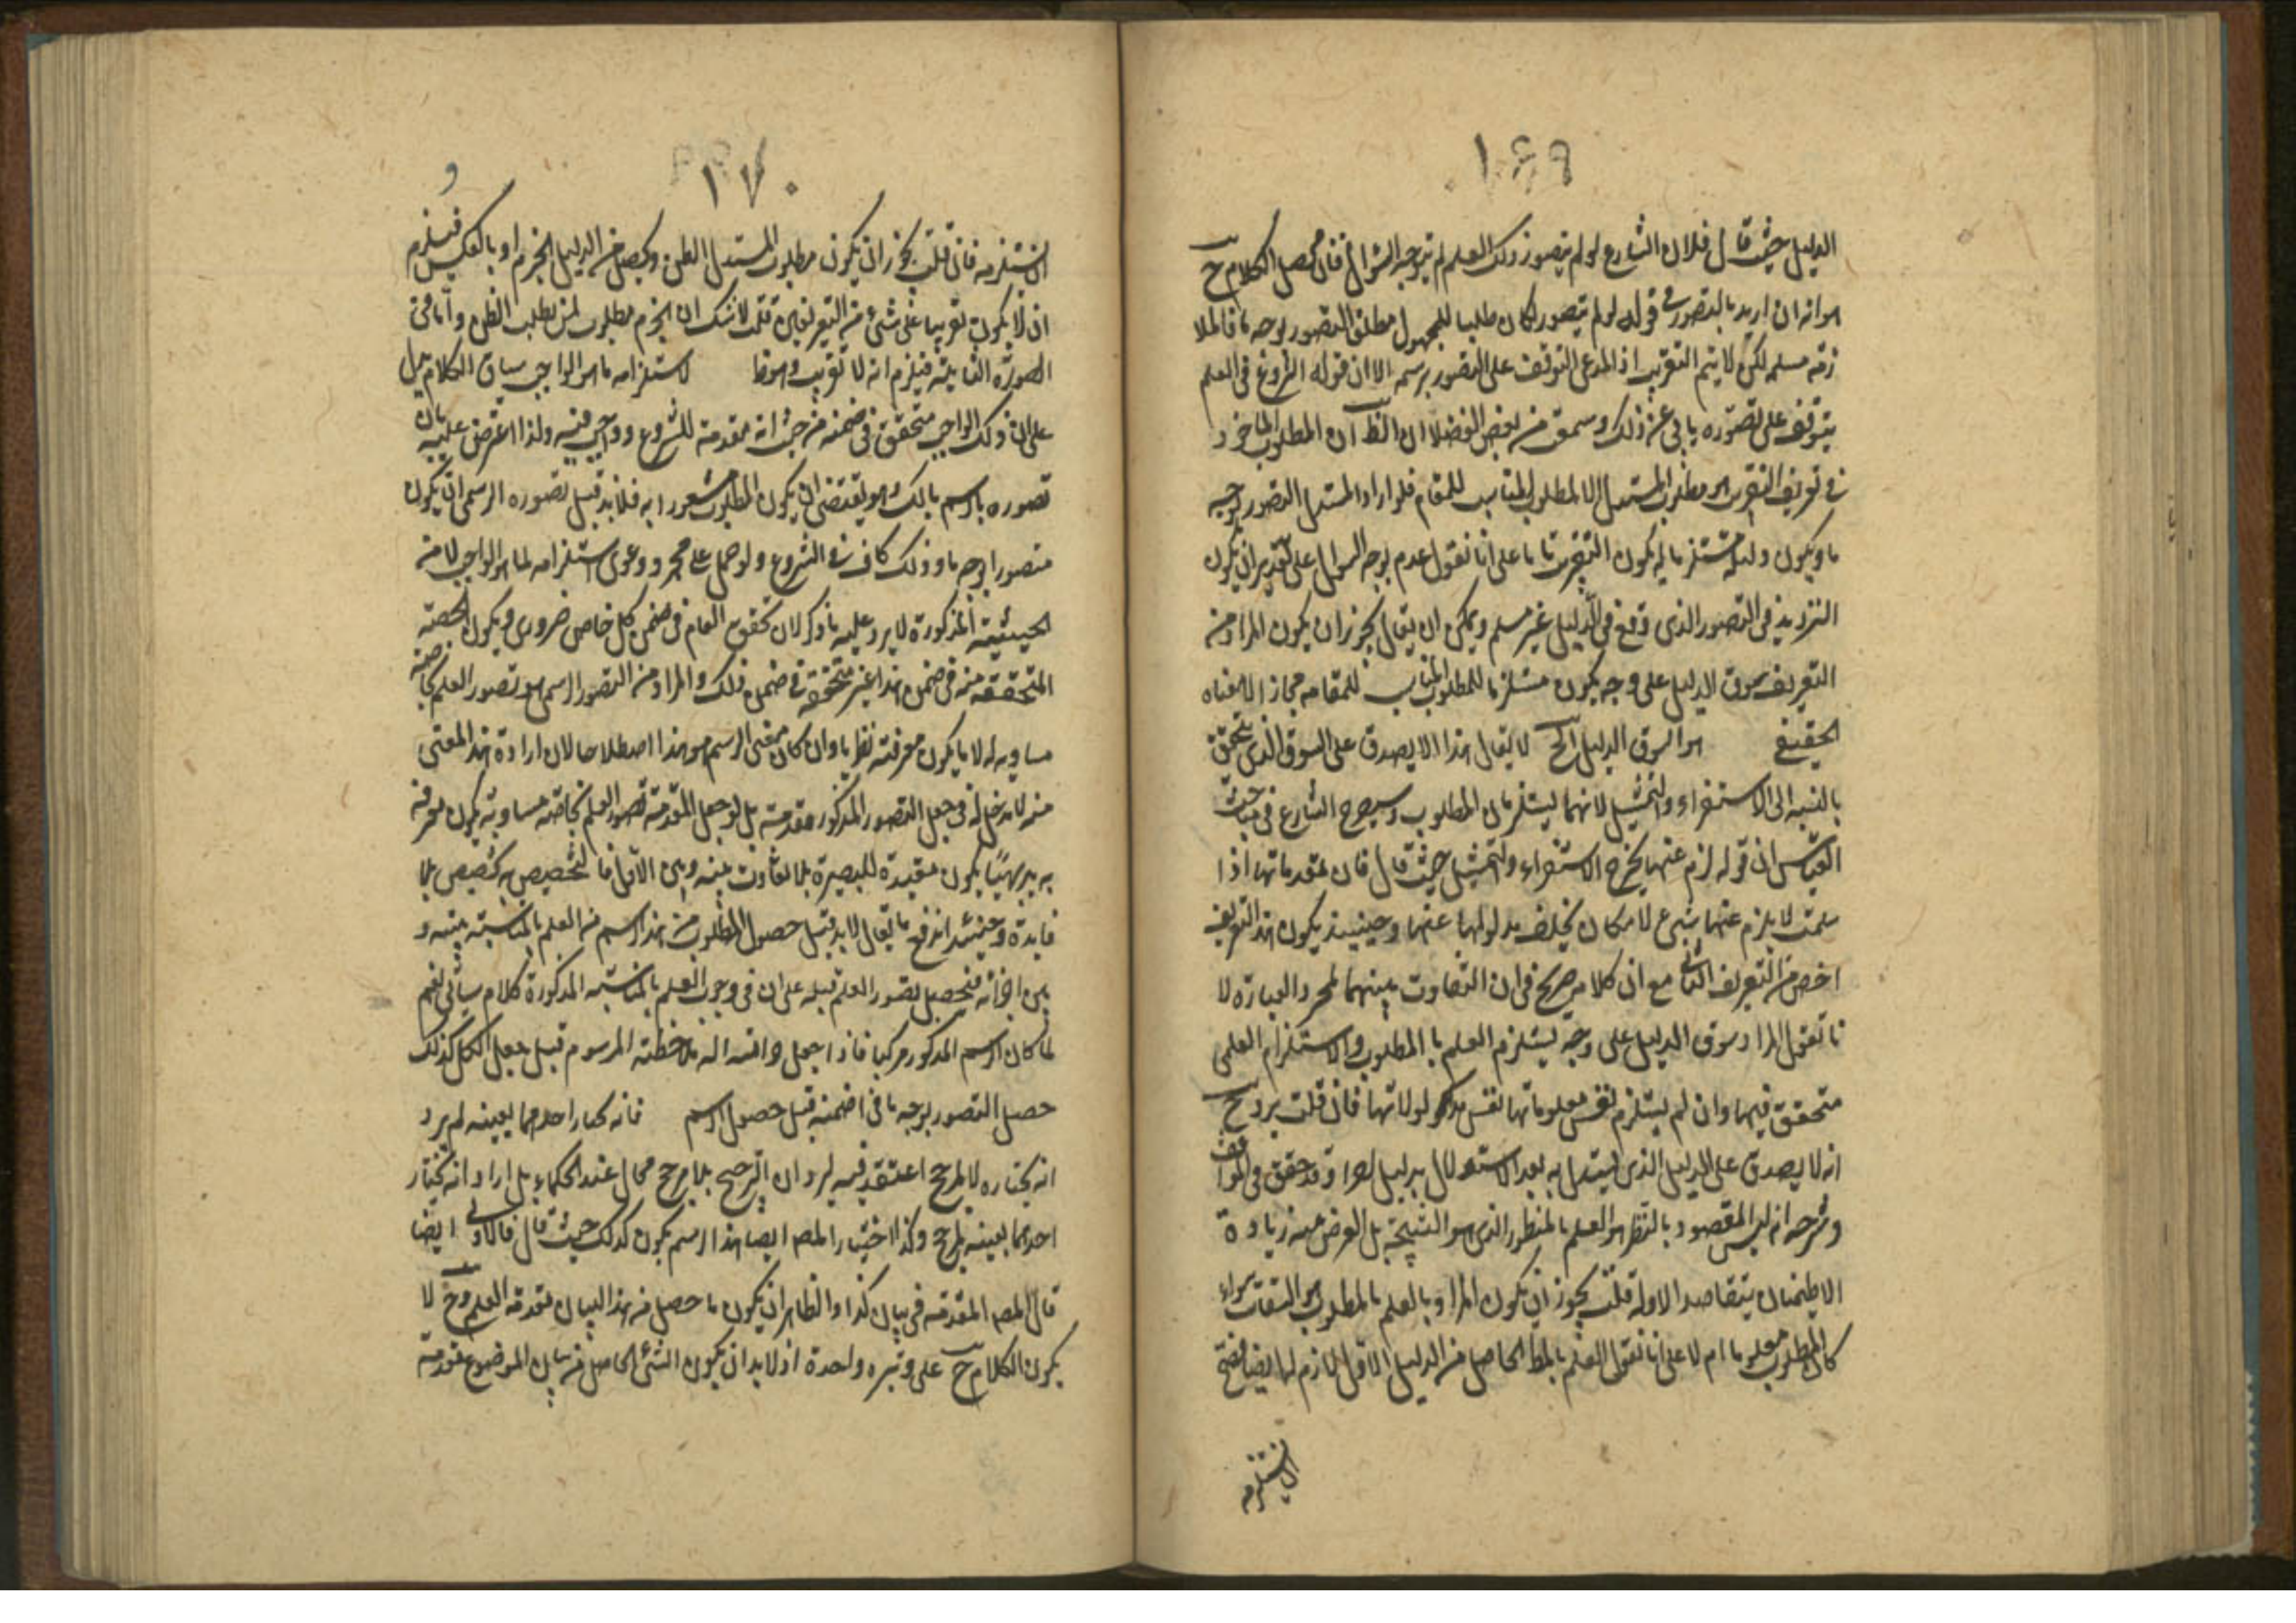 ١٦٩
الدليل حيث قال فلان الشارع لو لم يتصور ذلك العلم لم يتوجه السؤال فان محصل الكلام ح
هو انه ان اريد بالتصور في قوله لو لم يتصور لكان طلبا للمجهول مطلق التصور بوجه ما فالملا
زمة مسلمه لكن لا يتم التقريب اذ المدعى التوقف على التصور برسمه الا ان قوله الشروع في العلم
يتوقف على تصوره يابى عن ذلك وسمعت من بعض الفضلا ان الظ ان المطلوب الماخوذ
في تعريف التقريب هو مطلوب المستدل لا المطلوب المناسب للمقام فلو اراد المستدل التصور بوجه
ما ويكون دليله مستلزما له يكون التقريب تاما على انا نقول عدم توجه السوال على تقدير ان يكون
الترديد في التصور الذي وقع في الدليل غير مسلم ويمكن ان يقال يجوز ان يكون المراد من
التعريف سوق الدليل على وجه يكون مستلزما للمطلوب المناسب للمقام مجازا لا معناه
الحقيقي هو السوق الدليل الخ لا يقال هذا لا يصدق على السوق الذي يتحقق
بالنسبه الى الاستقراء والتمثيل لانهما ليستلزمان المطلوب وسيصرح الشارع في مباحث
القياس ان قوله لزم عنها يخرج الاستقراء والتمثيل حيث قال فان مقدماتها اذا
سلمت لا يلزم عنها شيء لامكان تخلف مدلولها عنها وحينيذ يكون هذا التعريف
اخص من التعريف الثاني مع ان كلامه صريح في ان التفاوت بينهما بمجرد العبارة لا
نا نقول المراد سوق الدليل على وجه يستلزم العلم بالمطلوب والاستلزام العلمي
متحقق فيها وان لم يستلزم نفس معلوماتها نفس مدلولاتها فان قلت يرد ح
انه لا يصدق على الدليل الذي يستدل به بعد الاستدلال بدليل اخر وقد حقق في المواقف
وشرحه انه ليس المقصود بالنظر هو العلم بالمنظور الذي هو النتيجة بل الغرض منه زيادة
الاطمينان بتعاضد الادلة قلت يجوز ان يكون المراد بالعلم بالمطلوب هو التفات سواء
كان المطلوب معلوما ام لا على انا نقول العلم بالمط الحاصل من الدليل الاول لازم لها ايضا فصح
ان يستلزمه
١٧٠
ان يستلزمه فان قلت يجوز ان يكون مطلوب المستدل الظن ويحصل من الدليل الجزم او بالعكس فيلزم
ان لا يكون تقريبا على شيء من التعريفين قلت لا شك ان الجزم مطلوب لمن يطلب الظن واما في
الصورة الثانية فيلزم انه لا تقريب وهو ظ لاستلزامه ما هو الواجب سياق الكلام يدل
على ان ذلك الواجب متحقق في ضمنه من حيث انه مقدمة للشروع وواجب فيه ولذا اعترض عليه بان
تصوره باسم بالك هو يقتضى ان يكون المطلوب مشعورا به فلا بد قبل تصوره الرسمى ان يكون
متصورا بوجه ما وذلك كاف في الشروع ولو حمل على مجرد دعوى استلزامه لما هو الواجب لا من
الحيثية المذكورة لا يرد عليه ما ذكر لان تحقق العام في ضمن كل خاص ضروري ويكون الحصة
المتحققة منه في ضمن هذا غير متحققة في ضمن ذلك والمراد من التصور الرسمى هو تصور العلم بخاصة
مساوية له لا ما يكون معرفته نظريا وان كان معنى الرسم هو هذا اصطلاحا لان ارادة هذا المعنى
منه لا مدخل له في جعل التصور المذكور مقدمة بل لو جعل المقدمة تصور العلم بخاصة مساوية يكون معرفة
به بديهيا يكون مفيدة للبصيرة بلا تفاوت بينه وبين الاول فالتخصيص به تخصيص بلا
فايدة وحينئذ اندفع ما يقال لا بد قبل حصول المطلوب من هذا الرسم من العلم بالمناسبة بينه و
بين اجزائه فيحصل تصور العلم قبله على ان في وجوب العلم بالمناسبة المذكورة كلام سياتى نعم
لما كان الرسم المذكور مركبا فاذا جعل الة ملاحظة المرسوم قبل جعل الكل كذلك
حصل التصور بوجه ما في ضمنه قبل حصول الرسم فانه كما را احدهما بعينه لم يرد
انه يختاره لا لمرجح اعتقد فيه ليرد ان الترجيح بلا مرجح محال عند الحكماء بل اراد انه يختار
احدهما بعينه لمرجح وكذا اختيار المصـ ايضا هذا الرسم يكون كذلك حيث قال فالاولى ايضا
قال المصـ المقدمة في بيان كذا والظاهر ان يكون ما حصل من هذا البيان مقدمة العلم وح لا
يكون الكلام ح على وتيره واحدة اذ لا بد ان يكون الشئ الحاصل من بيان الموضوع مقدمة